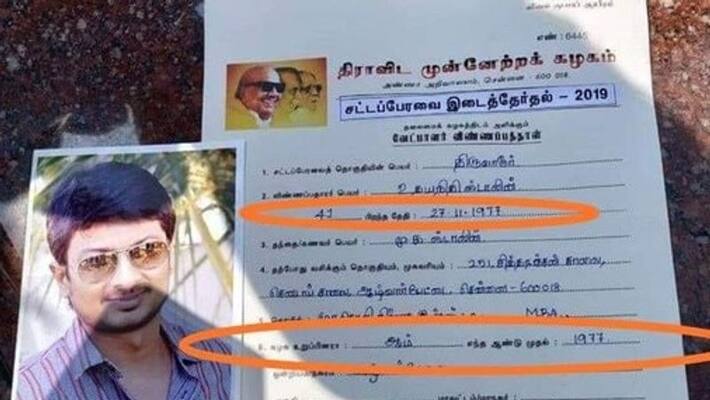 விலை ரூபாய் ஆயிரம்
எண் : 6445
திராவிட முன்னேற்றக் கழகம்
அண்ணா அறிவாலயம், சென்னை - 600 018.
சட்டப்பேரவை இடைத்தேர்தல் – 2019
தலைமைக் கழகத்திடம் அளிக்கும்
வேட்பாளர் விண்ணப்பத்தாள்
1. சட்டப்பேரவைத் தொகுதியின் பெயர் : திருவாரூர்
2. விண்ணப்பதாரர் பெயர் : உதயநிதி ஸ்டாலின்
41 பிறந்த தேதி : 27.11.1977
3. தந்தை/கணவர் பெயர் : மு.க. ஸ்டாலின்
4. தற்போது வசிக்கும் தொகுதியும், முகவரியும் : 25/ சித்தரஞ்சன் சாலை,
செனடாப் சாலை ஆழ்வார்பேட்டை, சென்னை-600018
MBA.,
6. கழக உறுப்பினரா : ஆம் எந்த ஆண்டு முதல் : 1977
மாவட்டம்/மாநகர்